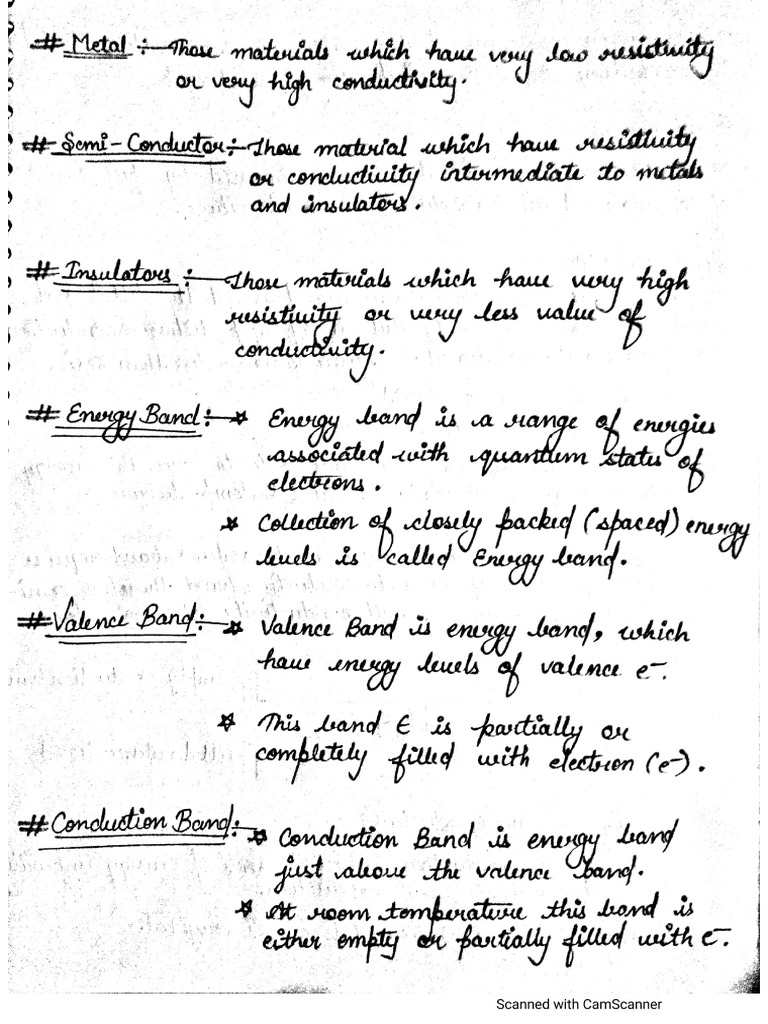 # Metal :- Those materials which have very low resistivity
or very high conductivity.
# Semi-Conductor :- Those material which have resistivity
or conductivity intermediate to metals
and insulators.
# Insulators :- Those materials which have very high
resistivity or very less value of
conductivity.
# Energy Band :- ☆ Energy band is a range of energies
associated with quantum status of
electrons.
☆ Collection of closely packed (spaced) energy
levels is called Energy band.
# Valence Band :- ☆ Valence Band is energy band, which
have energy levels of valence e-.
☆ This band E is partially or
completely filled with electron (e-).
# Conduction Band :- ☆ Conduction Band is energy band
just above the valence band.
☆ At room temperature this band is
either empty or partially filled with e-.
Scanned with CamScanner